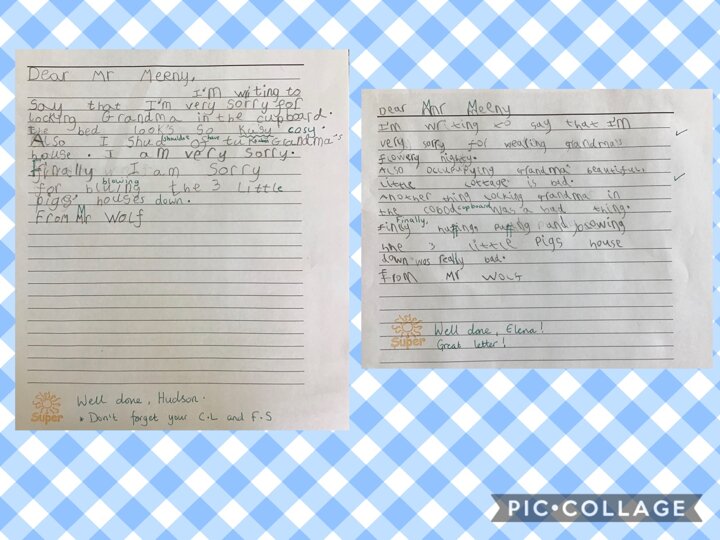 Dear Mr Meeny,
I'm writing to
Say that I'm very sorry for
locking Grandma in the cupboard.
the bed looks so Kusy cosy.
Also I Shud shouldn't have of tu Grandma's
house. I am very Sorry.
Finally I am Sorry
for bluing blowing the 3 little
pigs' houses down.
From Mr Wolf
Super
Well done, Hudson.
* Don't forget your C.L and F.S
Dear Mr Meeny
I'm writing to say that I'm
very sorry for wearing grandma's
flowery nighty.
Also occupying grandma' beautiful
little cottage is bad.
Another thing locking grandma in
the cobod cupboard was a bad thing.
Finaly Finally, huffing puffing and blowing
the 3 little pigs house
down was really bad.
from Mr Wolf
Super
Well done, Elena!
Great letter!
PIC•COLLAGE